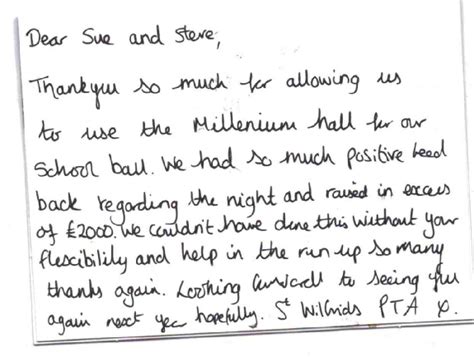 Dear Sue and Steve,
Thankyou so much for allowing us
to use the Millenium hall for our
School ball. We had so much positive feed
back regarding the night and raised in excess
of £2000. We couldn't have done this without your
flexcibility and help in the run up so many
thanks again. Looking forward to seeing you
again next year hopefully. St Wilfrids PTA x.